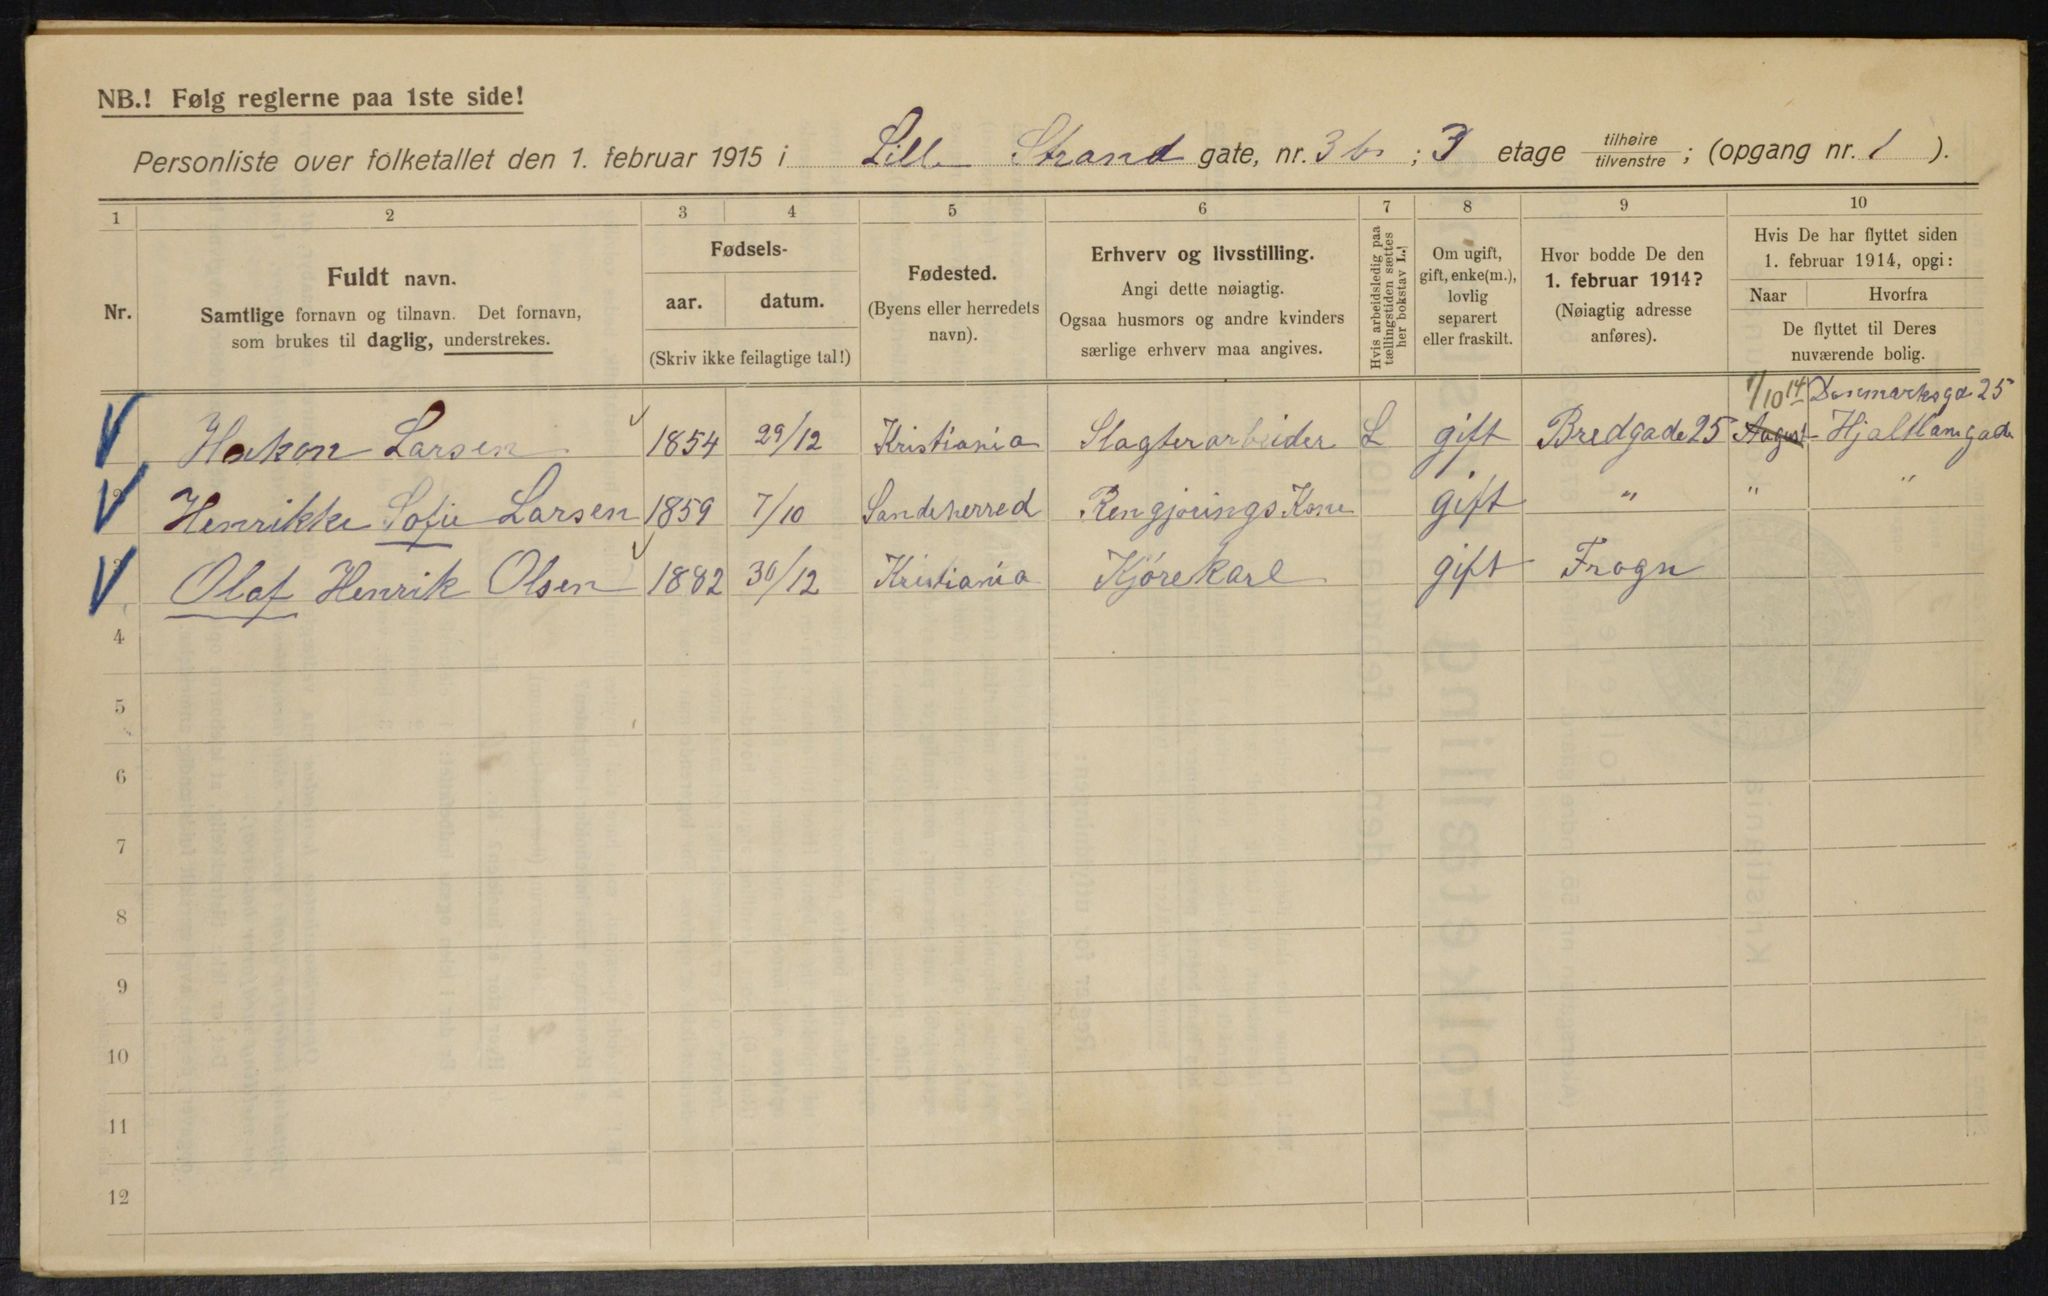 NB.! Følg reglerne paa 1ste side!
Personliste over folketallet den 1. februar 1915 i Lille Strand gate, nr. 3 b ; 3 etage tilhøire tilvenstre ; (opgang nr. 1 ).
1 2 3 4 5 6 7 8 9 10
Nr.
Fuldt navn.
Samtlige fornavn og tilnavn. Det fornavn,
som brukes til daglig, understrekes.
Fødsels-
aar. datum.
(Skriv ikke feilagtige tal!)
Fødested.
(Byens eller herredets
navn).
Erhverv og livsstilling.
Angi dette nøiagtig.
Ogsaa husmors og andre kvinders
særlige erhverv maa angives.
Hvis arbeidsledig paa
tællingstiden sættes
her bokstav L.!
Om ugift,
gift, enke(m.),
lovlig
separert
eller fraskilt.
Hvor bodde De den
1. februar 1914?
(Nøiagtig adresse
anføres).
Hvis De har flyttet siden
1. februar 1914, opgi:
Naar Hvorfra
De flyttet til Deres
nuværende bolig.
1/10 14 Danmarksgd 25
Hakon Larsen 1854 29/12 Kristiania Slagterarbeider L gift Bredgade 25 August Hjaltlamgade
2 Henrikke Sofie Larsen 1859 7/10 Sandeherred Rengjørings Kone gift " " "
3 Olaf Henrik Olsen 1882 30/12 Kristiania Kjørekarl gift Frogn
4
5
6
7
8
9
10
11
12